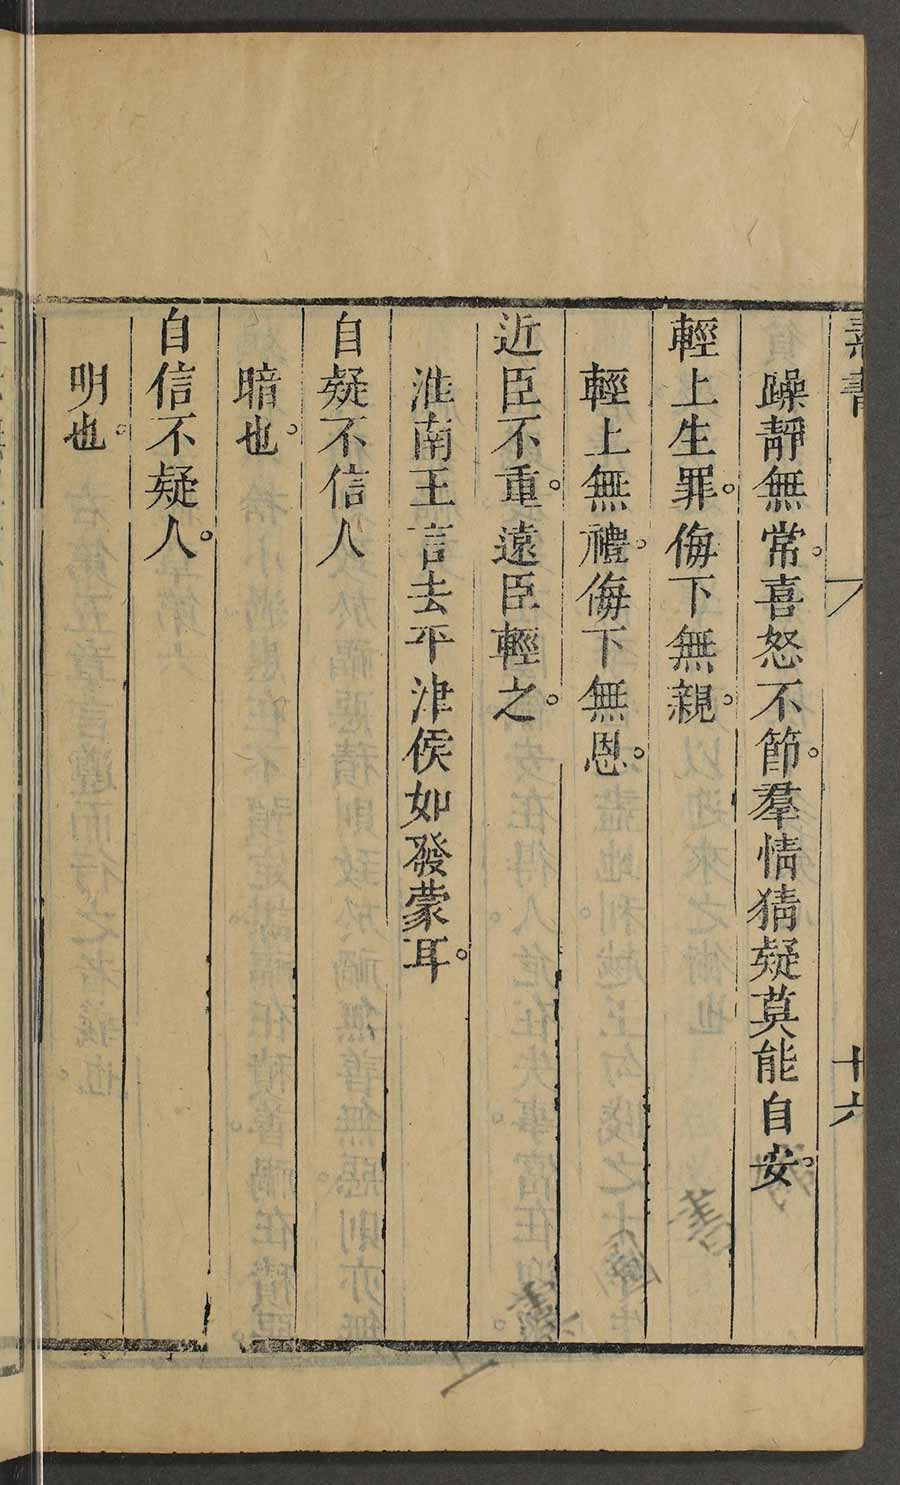 素書
十六
躁靜無常。喜怒不節。羣情猜疑莫能自安。
輕上生罪。侮下無親。
輕上無禮。侮下無恩。
近臣不重。遠臣輕之。
淮南王言去平津侯如發蒙耳。
自疑不信人
暗也。
自信不疑人。
明也。